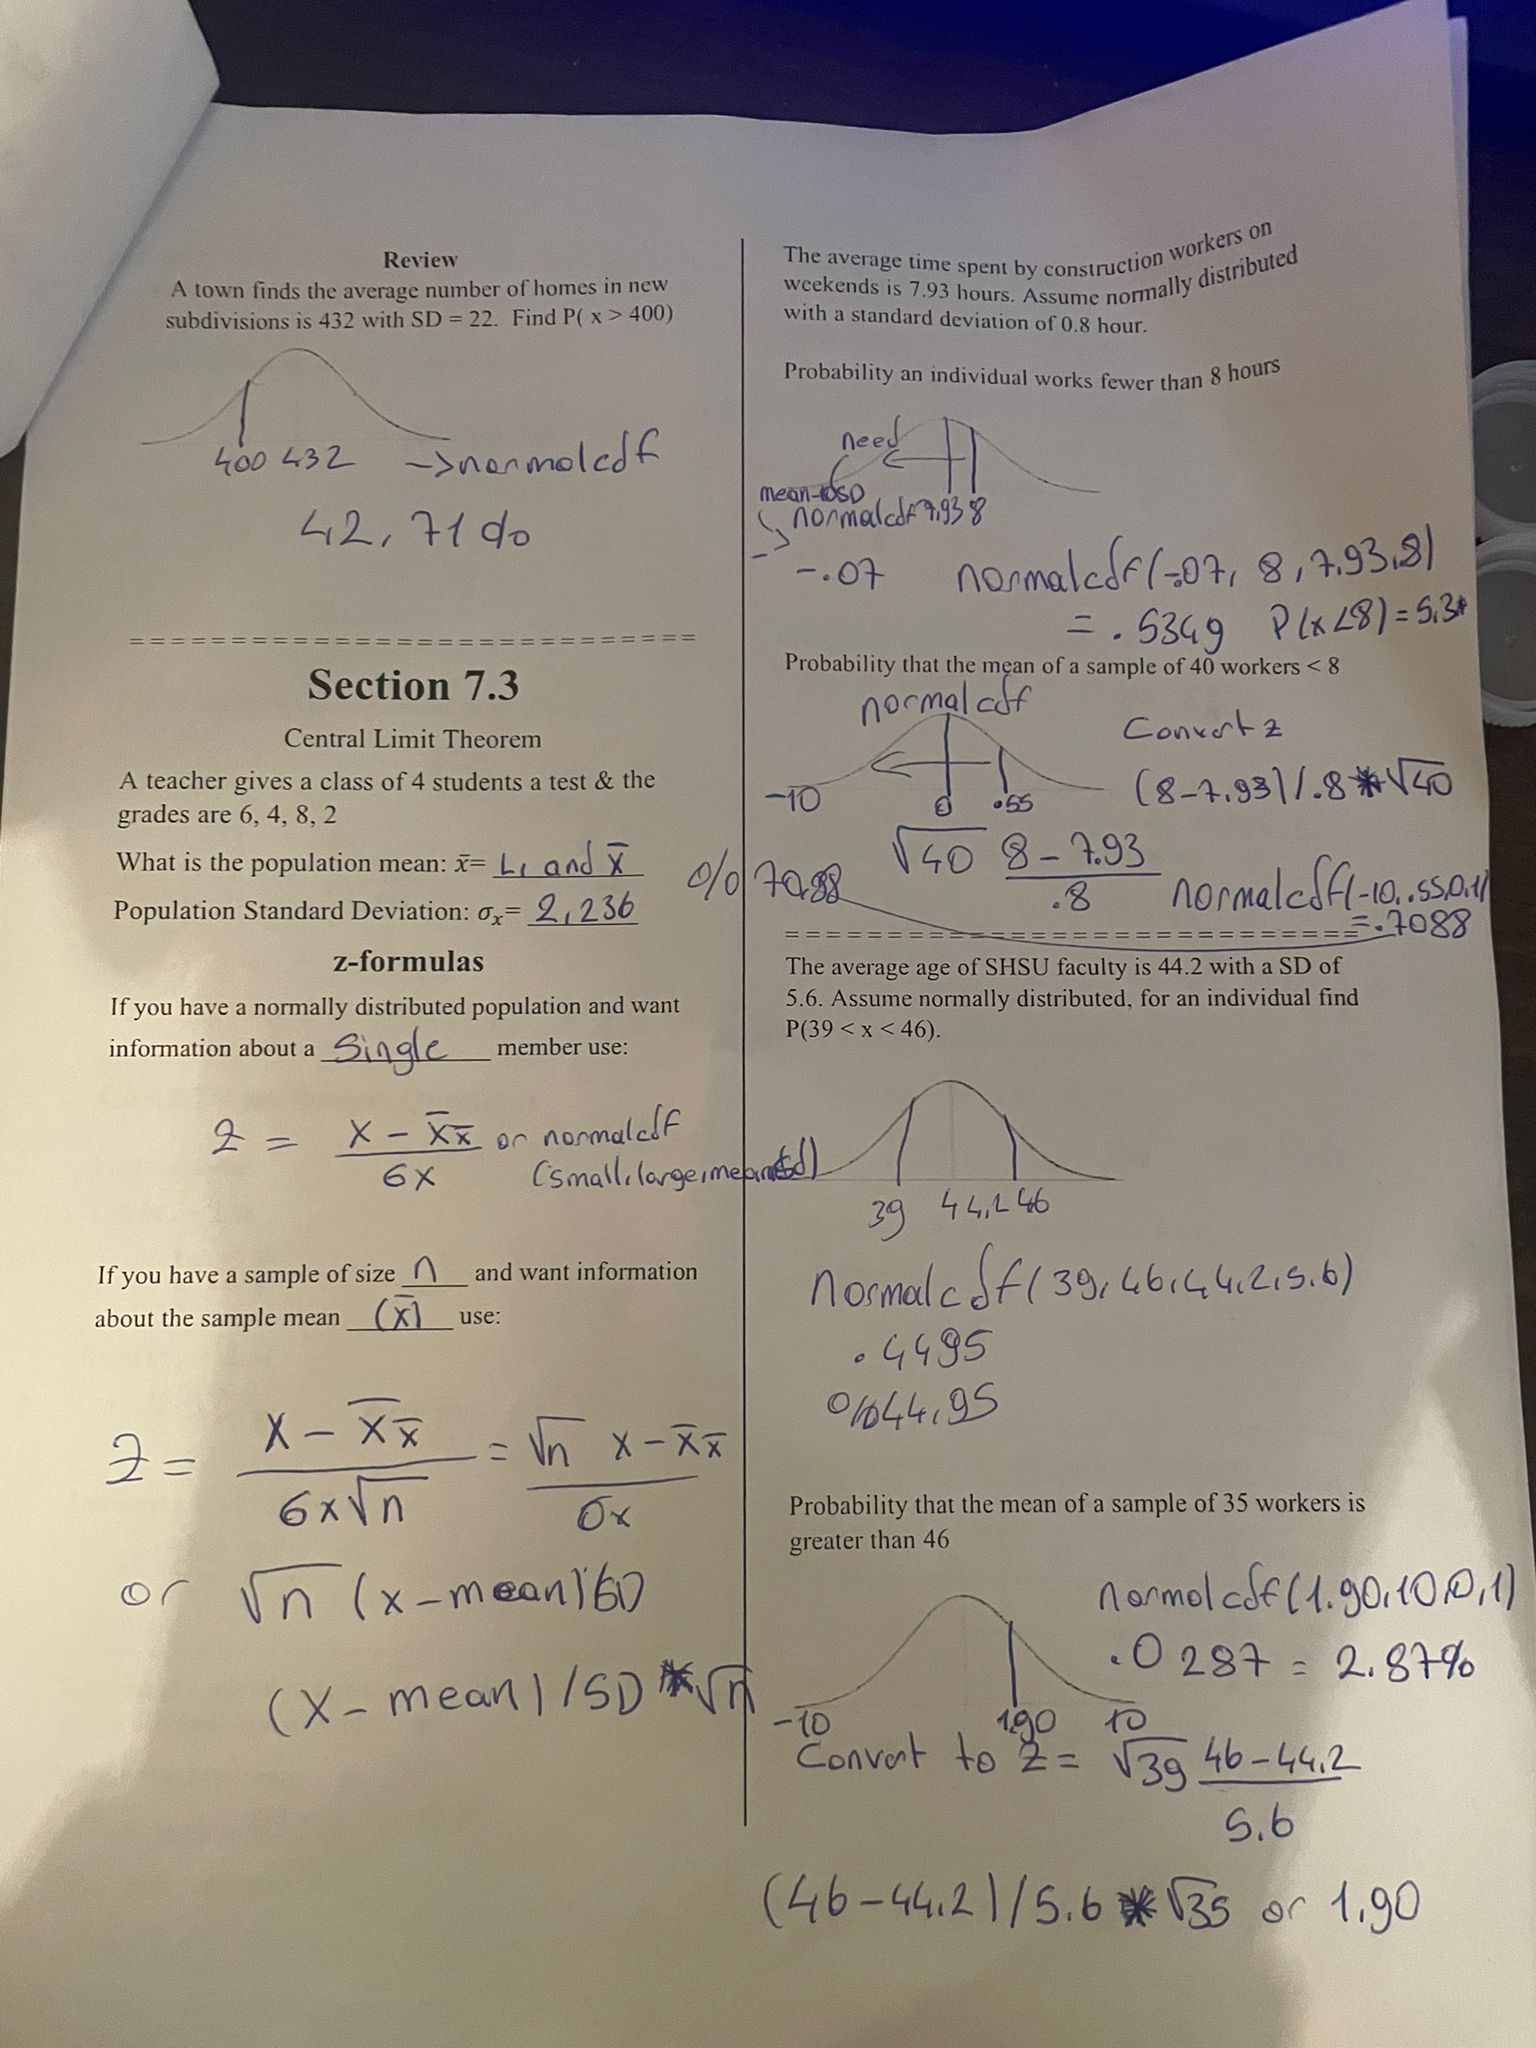 Review
A town finds the average number of homes in new
subdivisions is 432 with SD = 22. Find P( x > 400)
400 432 -> normalcdf
42,71%
Section 7.3
Central Limit Theorem
A teacher gives a class of 4 students a test & the
grades are 6, 4, 8, 2
What is the population mean: x̄= L1 and x̄
Population Standard Deviation: σx= 2,236
z-formulas
If you have a normally distributed population and want
information about a single member use:
z = x - x̄x̄ / 6x or normalcdf
(small,large,mean,sd)
If you have a sample of size n and want information
about the sample mean (x̄) use:
z = x - x̄x̄ / 6x√n = √n x - x̄x̄ / σx
or √n (x-mean)/SD
(x - mean) / SD * √n
The average time spent by construction workers on
weekends is 7.93 hours. Assume normally distributed
with a standard deviation of 0.8 hour.
Probability an individual works fewer than 8 hours
need
mean-10SD
normalcdf 7.93 8
-.07 normalcdf(-.07, 8, 7.93, .8)
= .5349 P(x<8) =
Probability that the mean of a sample of 40 workers < 8
normalcdf
Convert z
-10 0 .55 (8-7.93)/.8 * √40
√40 8 - 7.93 / .8
% 70.88 normalcdf(-10, .55,0,1)
= .7088
The average age of SHSU faculty is 44.2 with a SD of
5.6. Assume normally distributed, for an individual find
P(39 < x < 46).
39 44,2 46
normalcdf(39,46,44,2,5.6)
.4495
%44,95
Probability that the mean of a sample of 35 workers is
greater than 46
normalcdf(1.90,10,0,1)
.0287 = 2.87%
-10 1.90 10
Convert to z = √39 46-44,2 / 5.6
(46-44,2)/5.6 * √35 or 1,90